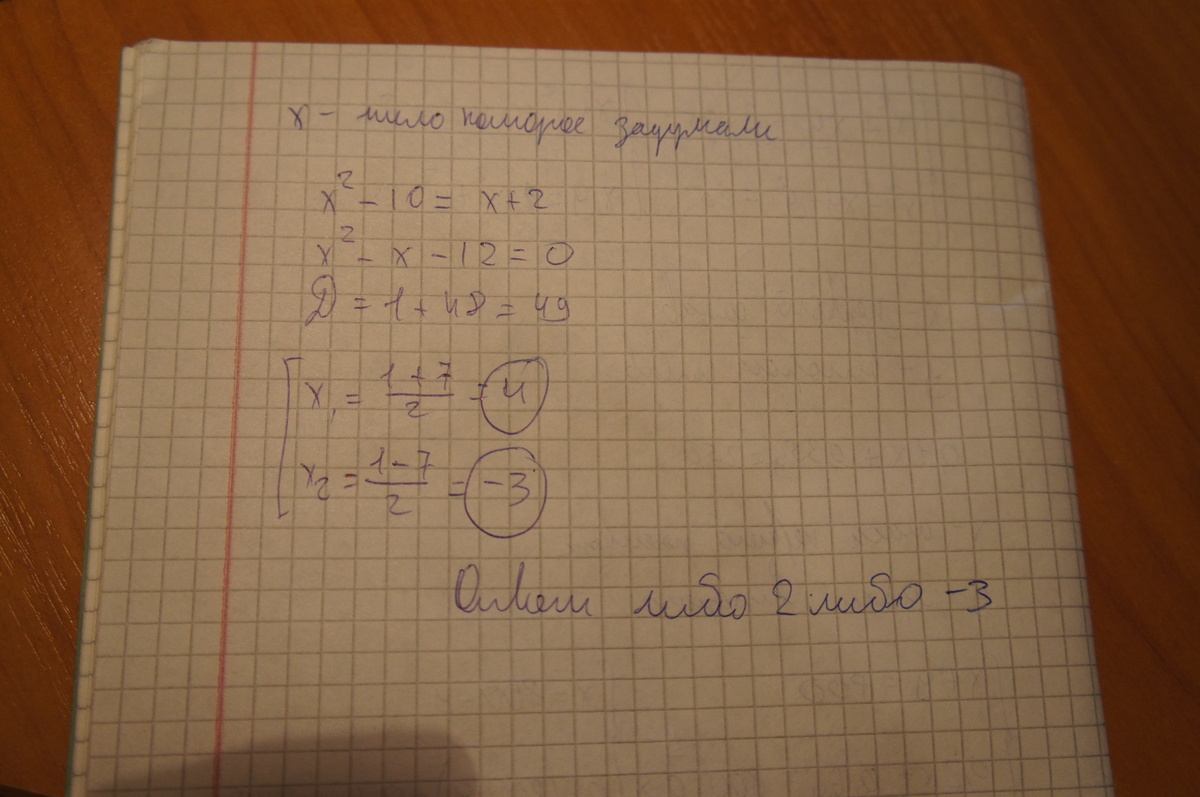 x - число которое задумали
x² - 10 = x + 2
x² - x - 12 = 0
D = 1 + 48 = 49
x₁ = (1 + 7)/2 = 4
x₂ = (1 - 7)/2 = -3
Ответ либо 2 либо -3